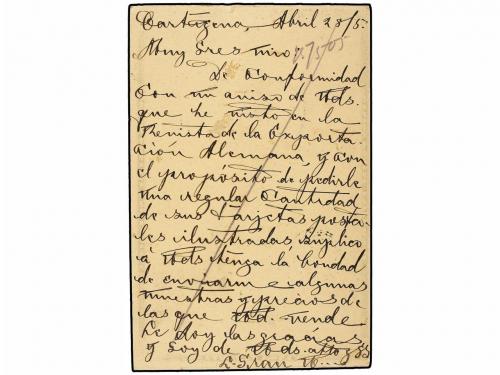 Cartagena, Abril 28/5.
Muy Sres mio
De Conformidad
Con un aviso de Uds.
que he visto en la
Revista de la Exporta
ción Alemana, y con
el propósito de pedirle
una regular Cantidad
de sus tarjetas posta
les ilustradas, suplico
á Uds tenga la bondad
de enviarm algunas
muestras y precios de
las que Ud. vende
Le doy las gracias
y Soy de Uds. atto y SS